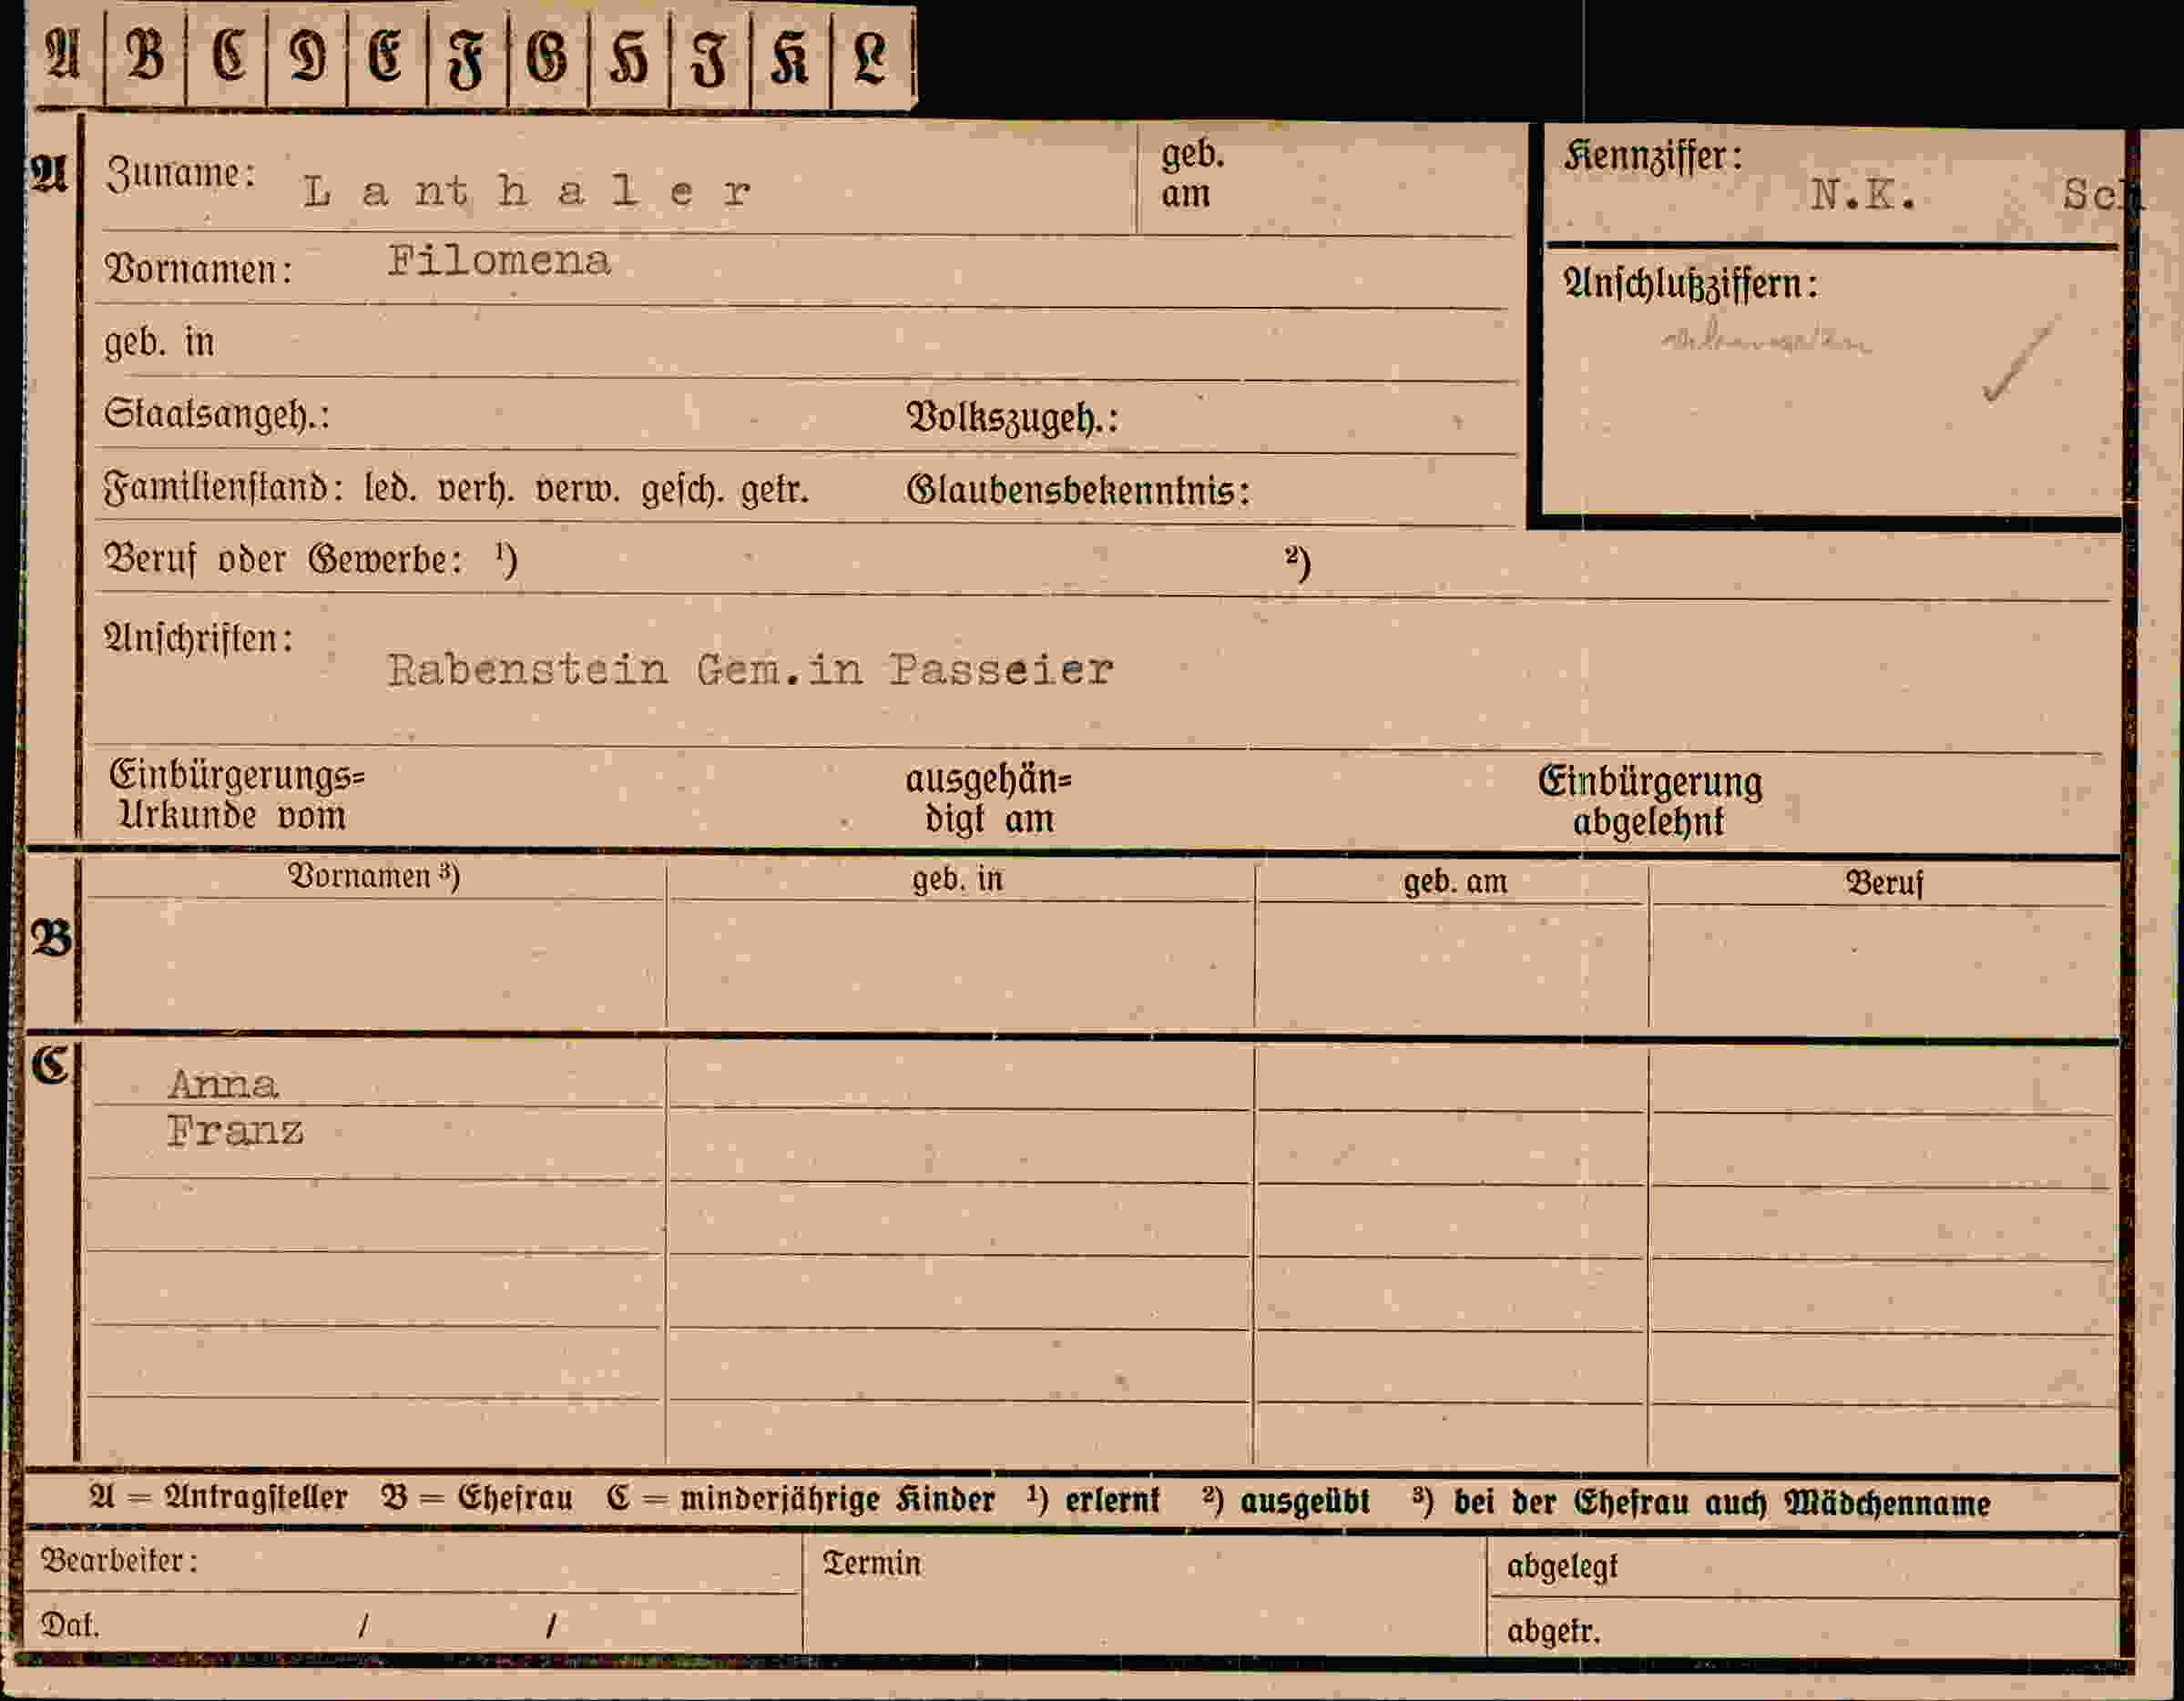 A B C D E F G H I K L
A Zuname: Lanthaler geb. am
Kennziffer: N.K. Sch
Vornamen: Filomena
Anschlußziffern:
geb. in
Staatsangeh.: Volkszugeh.:
Familienstand: led. verh. verw. gesch. getr. Glaubensbekenntnis:
Beruf oder Gewerbe: ¹) ²)
Anschriften:
Rabenstein Gem.in Passeier
Einbürgerungs= ausgehän= Einbürgerung
Urkunde vom digt am abgelehnt
Vornamen ³) geb. in geb. am Beruf
B
C
Anna
Franz
A = Antragsteller B = Ehefrau C = minderjährige Kinder ¹) erlernt ²) ausgeübt ³) bei der Ehefrau auch Mädchenname
Bearbeiter: Termin abgelegt
Dat. / / abgetr.